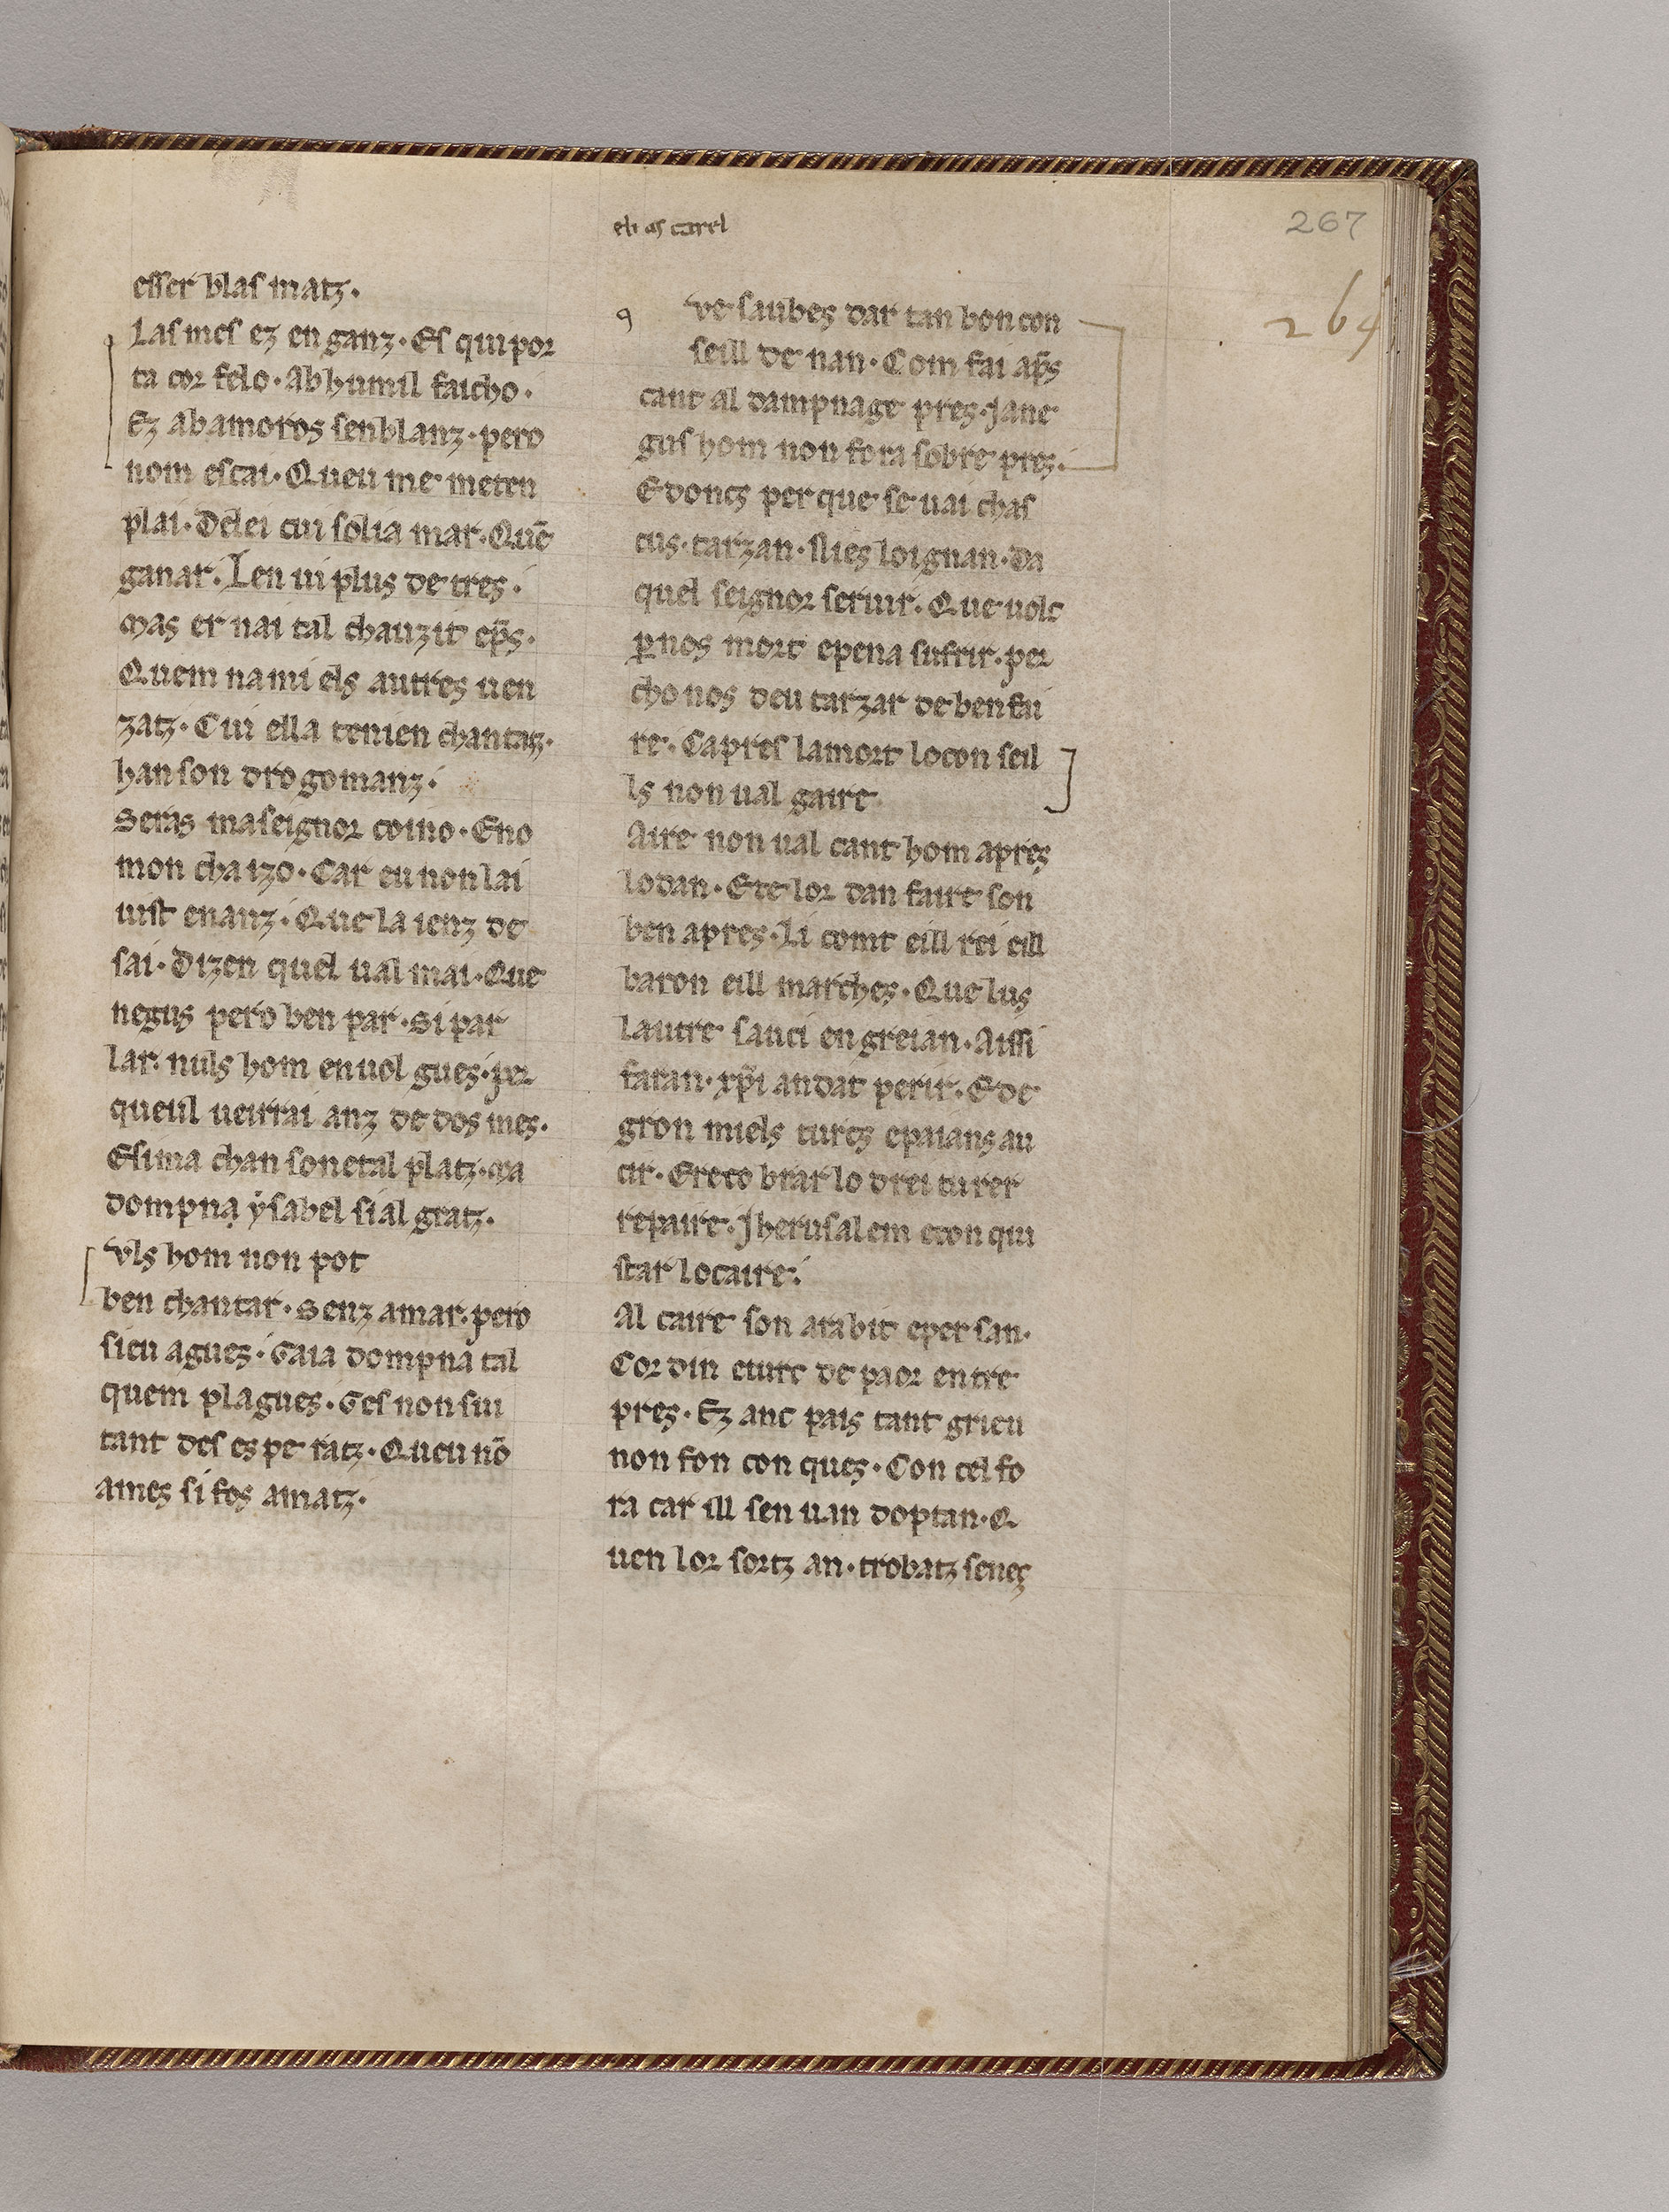 267
264
esser blas matz.
Las mes ez en ganz. Es qui por
ta cor felo. Ab humil faicho.
Ez ab amoros senblanz. pero
nom estai. Queu me meten
plai. Delei cui solia mar. Quē
ganar. Len ui plus de tres.
Mas er nai tal chauzit ep̄s.
Quem na mi els autres uen
zatz. Cui ella tenien chantaz.
han son drogomanz.
Seras ma seignor coino. Eno
mon cha izo. Car eu non lai
uist enanz. Que la ienz de
sai. Dizen quel ual mai. Que
negus pero ben par. Si par
lar. nuls hom en uol gues. per
queul ueirai anz de dos mes.
E si ma chan sonetal platz. Ma
dompna ysabel si al gratz.
Vls hom non pot
ben chantar. Senz amar. pero
sieu agues. Gaia dompna tal
quem plagues. Ges non sui
tant des es pe ratz. Queu nō
ames si fos amatz.
elias carel
q Ve saubes dar tan bon con
seill de nan. Com fai ap̄s
cant al dampnage pres. Jane
gus hom non fora sobre pres.
E doncs per que se uai chas
cus. tarzan. Nies loignan. Da
quel seignor seruir. Que uolc
ꝑ nos mort epena sufrir. per
cho nos deu tarzar de ben fai
re. Capres la mort lo con seil
ls non ual gaire
Aire non ual cant hom apres
lo dan. Ete lor dan faire son
ben apres. Li comt eill rei eill
baron eill marches. Que lus
lautre sauci en greian. Aissi
faran. xp̄i andat perir. E de
gron miels turcs epaians au
cir. E reco brar lo drei turer
repaire. Jherusalem econ qui
star lo caire.
Al caire son arabit eper san.
Cor din eturc de paor entre
pres. Ez anc pais tant grieu
non fon con ques. Con cel fo
ra car ill sen uan doptan. Q
uen lor sortz an. trobatz senes